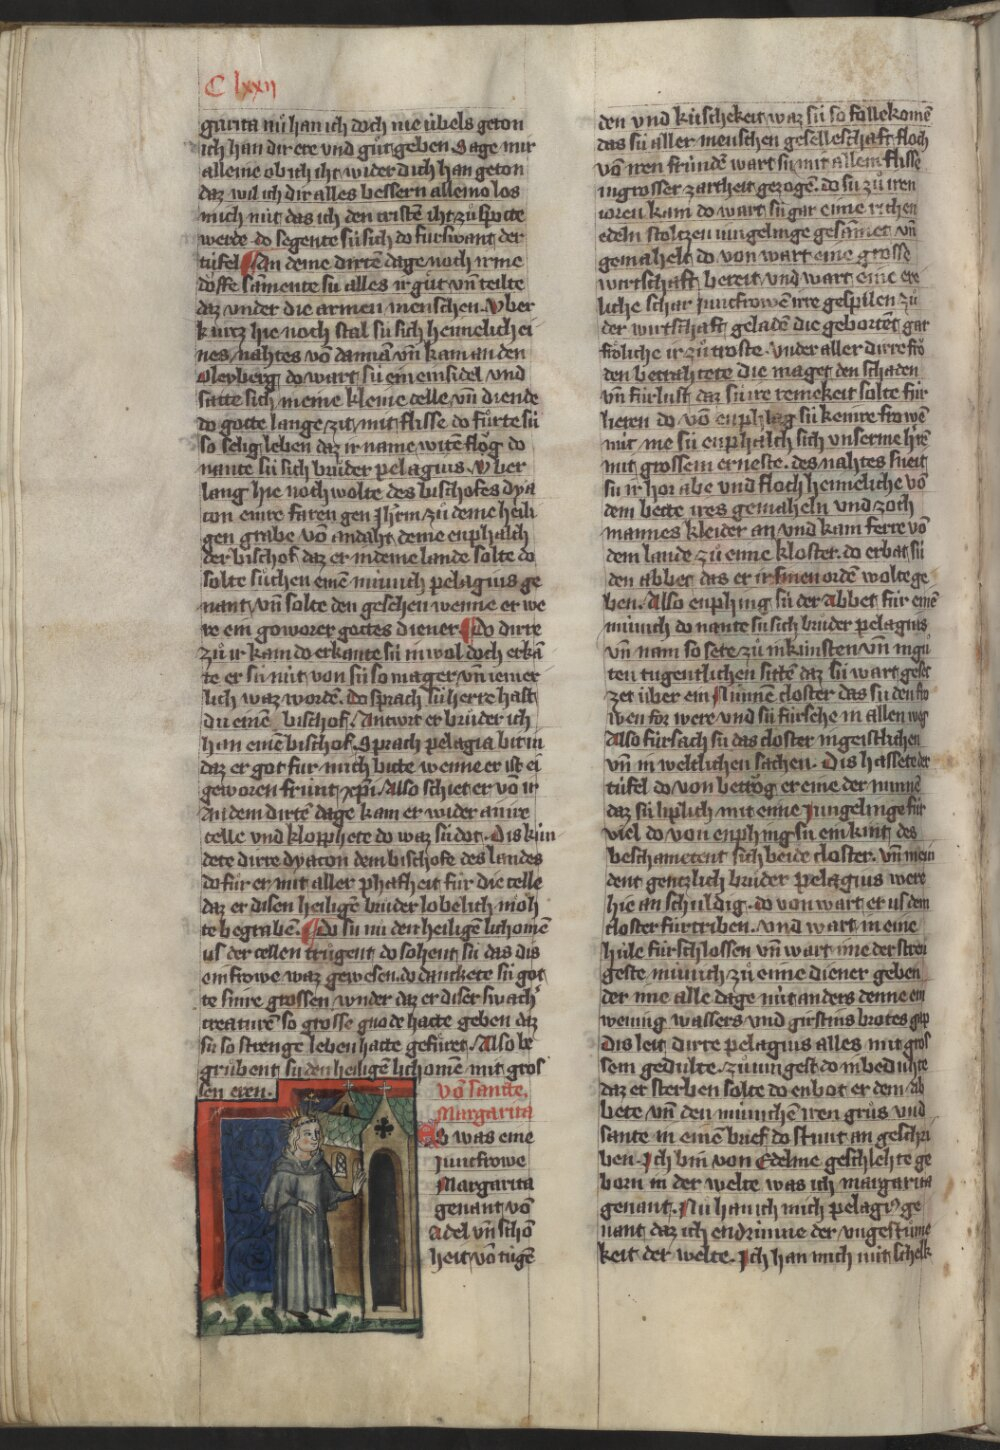 C lxxii
garita nu han ich doch nie übels geton
ich han dir ere vnd gůt geben. Sage mir
alleine ob ich iht wider dich han getон
daz wil ich dir alles bessern alleine los
mich nüt das ich den cristē iht zů spotte
werde. do segente sü sich do furswant der
tüfel. An deme dirtē dage noch irme
dosse sāmente sü alles ir gůt vn̄ teilte
daz vnder die armen menschen. Vber
kurtz hie noch stal sü sich heimelich ei
nes nahtes vō damian vn̄ kam an den
Oleyberg do wart sü ein einsidel vnd
satte sich in eine kleine celle vn̄ diende
do gotte lange zit mit flisse do fůrte sü
so selig leben daz ir name witē flog do
nante sü sich brůder pelagius. Vber
lang hie noch wolte des bischofes dya
con eine faren gen Jhr̄m zů deme heili
gen grabe vō andaht deme enphalch
der bischof daz er in deme lande solte do
solte sůchen einē münich pelagius ge
nant vn̄ solte den gesehen wenne er we
re ein geworer gottes diener. Do dirre
zů ir kam do erkante sü in wol doch erkā
te er sü nüt von sü so mager vn̄ iemer
lich waz wordē. Do sprach sü herre hast
du einē bischof. Antwrt er brůder ich
han einē bischof. Sprach pelagia bit in
daz er got für mich bitte wenne er ist ei
geworen frünt xpi. Also schiet er vō ir
An dem dirtē dage kam er wider an ire
celle vnd klopphete do waz sü dot. Dis kün
dete dirre dyacon dem bischofe des landes
do fůr er mit aller phafheit für die celle
daz er disen heiligē brůder lobelich möh
te begrabē. Do sü nu den heiligē lichomē
us der cellen trůgent do sohent sü das dis
ein frowe waz gewesen. do danckete sü got
te sinre grossen wnder daz er diser swach
creaturē so grosse gnode hatte geben daz
sü so strenge leben hatte gefůret. Also be
grůbent sü den heiligē lichomē mit gros
sen eren.
Vō sancte
Margarita
Es was eine
juncfrowe
Margarita
genant vō
adel vn̄ schō
heit vō tůgē
den vnd küschekeit waz sü so follekomē
das sü aller menschen geselleschaft floch
vō iren fründē wart sü mit allem flisse
in grosser zartheit gezogē. do sü zů iren
ioren kam do wart sü gar eime richen
edeln stoltzen iungelinge gesāmet vn̄
gemahelt do von wart eine grosse
wirtschaft bereit vnd wart eine ere
liche schar juncfrowē irre gespilen zů
der wirtschaft geladē die gebortēt gar
fröliche ir zů troste. vnder aller dirre frō
den betrahtete die maget den schaden
vn̄ fürlust daz sü ire reinekeit solte für
lieren do vō enphing sü keinre frowē
mit me sü enphalch sich vnserme hr̄e
mit grossem erneste. des nahtes sneit
sü ir hor abe vnd floch heimeliche vō
dem bette ires gemaheln vnd zoch
mannes kleider an vnd kam ferre vō
dem lande zů eime kloster. do erbat sü
den abbet das er ir sinen ordē wolte ge
ben. Also enphing sü der Abbet für einē
münich do nante sü sich brůder pelagius
vn̄ nam so sere zů in künsten vn̄ in gů
ten tugentlichen sittē daz sü wart geset
zet über ein Nunnē closter das sü den fro
wen for were vnd sü fürsehe in allen weg
Also fürsach sü das closter in geistlichen
vn̄ in weltlichen sachen. Dis hassete der
tüfel do von betrōg er eine der nunnē
daz sü liplich mit eime Jungelinge für
viel do von enphing sü ein kint des
beschametent sich beide closter. vn̄ mein
dent gentzlich brůder Pelagius were
hie an schuldig. do von wart er us dem
closter fürtriben. vnd wart in eine
hüle fürschlossen vn̄ wart ime der stren
geste münich zů eime diener geben
der ime alle dage nüt anders denne ein
wenig wassers vnd girstins brotes gap
Dis leit dirre pelagius alles mit gros
sem gedulte. zů iungest do in beduhte
daz er sterben solte do enbot er dem ab
bete vn̄ den münchē iren grůs vnd
sante in einē brief do stunt an geschri
ben. Ich bin von Edelme geschlehte ge
born in der welte was ich margarita
genant. Nu han ich mich pelagiꝰ ge
nant daz ich endrinne der vngestüme
keit der welte. Ich han mich mit schelk